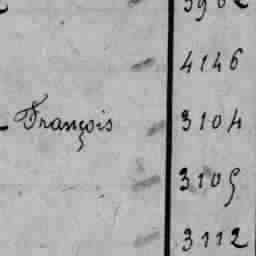 4146
François 3104
3105
3112